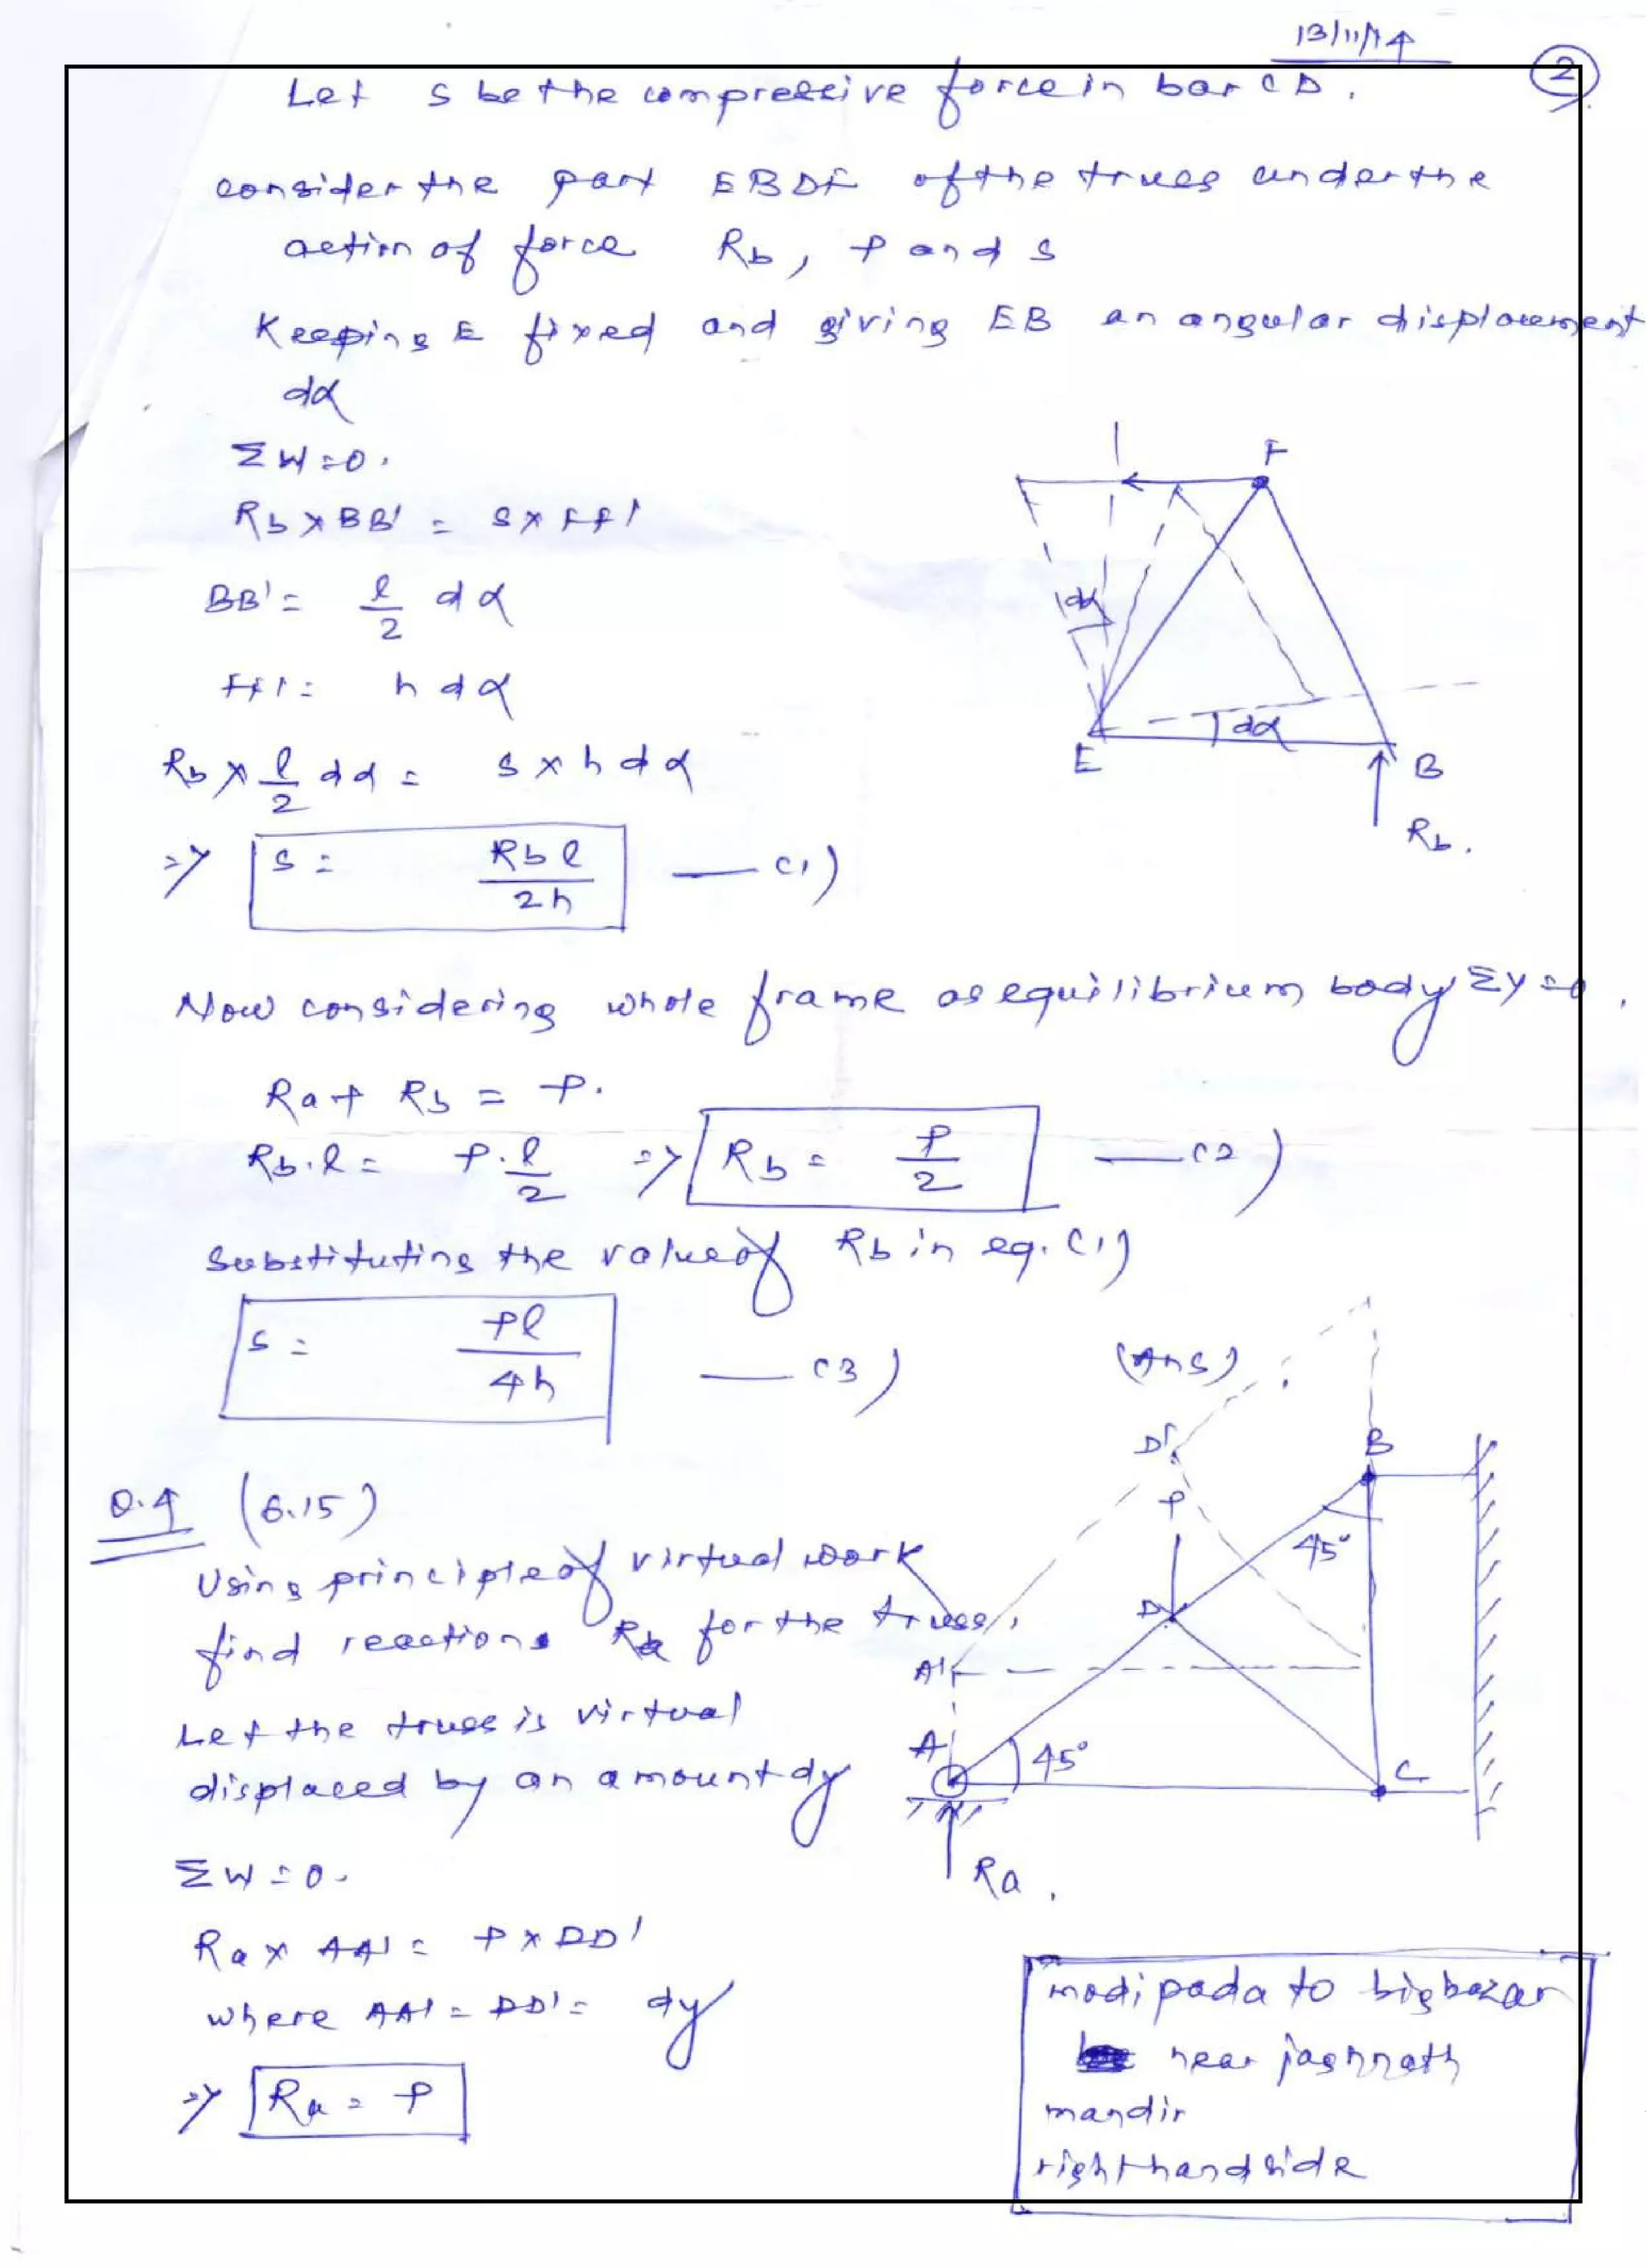 13/11/14
2
Let S be the compressive force in bar CD.
consider the part EBDF of the truss under the
action of force Rb, P and S
Keeping E fixed and giving EB an angular displacement
dα
ΣW=0.
Rb × BB' = S × FF'
BB' = l/2 dα
FF' = h dα
Rb × l/2 dα = S × h dα
=> S = Rb l / 2h — (1)
F
dα
dα
E
B
Rb.
Now considering whole frame as equilibrium body ΣY=0.
Ra + Rb = P.
Rb.l = P.l/2 => Rb = P/2 — (2)
Substituting the value of Rb in eq. (1)
S = Pl / 4h — (3) (Ans)
Q.4 (6.15)
Using principle of virtual work
find reactions Ra for the truss.
Let the truss is virtual
displaced by an amount dy
ΣW=0.
Ra × AA' = P × DD'
where AA' = DD' = dy
=> Ra = P
D'
P
B
45°
D
A'
A
45°
C
Ra.
modipada to bigbazar
near jagnnath
mandir
right hand side